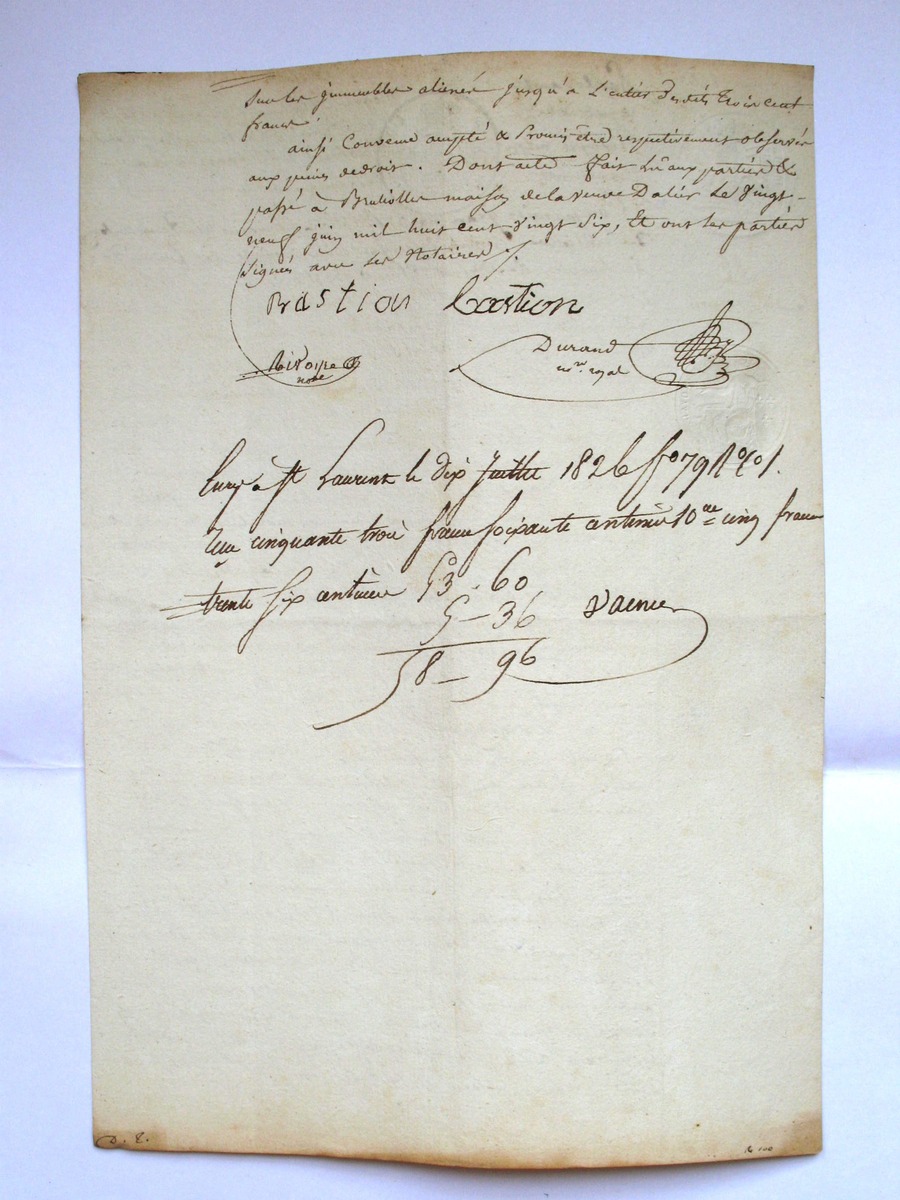 Sur les jmmeubles alienés jusqu'à L'entier desdits Trois cent
francs.
ainsi Convenu accepté & Promis être respectivement observér
aux peines de droit. Dont acte fait Lû aux parties &
passé à maison de la veuve le Vingt-
neuf juin mil huit cent Vingt Six, Et ont les parties
Signés avec les Notaires
BastiaN Bastion
Rivoire
Nore
Durand
nre. royal
Enreg. à St Laurent le dix Juillet 1826 fo 79
Reçu cinquante trois francs Soixante centimes 10me cinq francs
trente Six centimes 53 - 60
5 - 36
58 - 96
D. E.
100